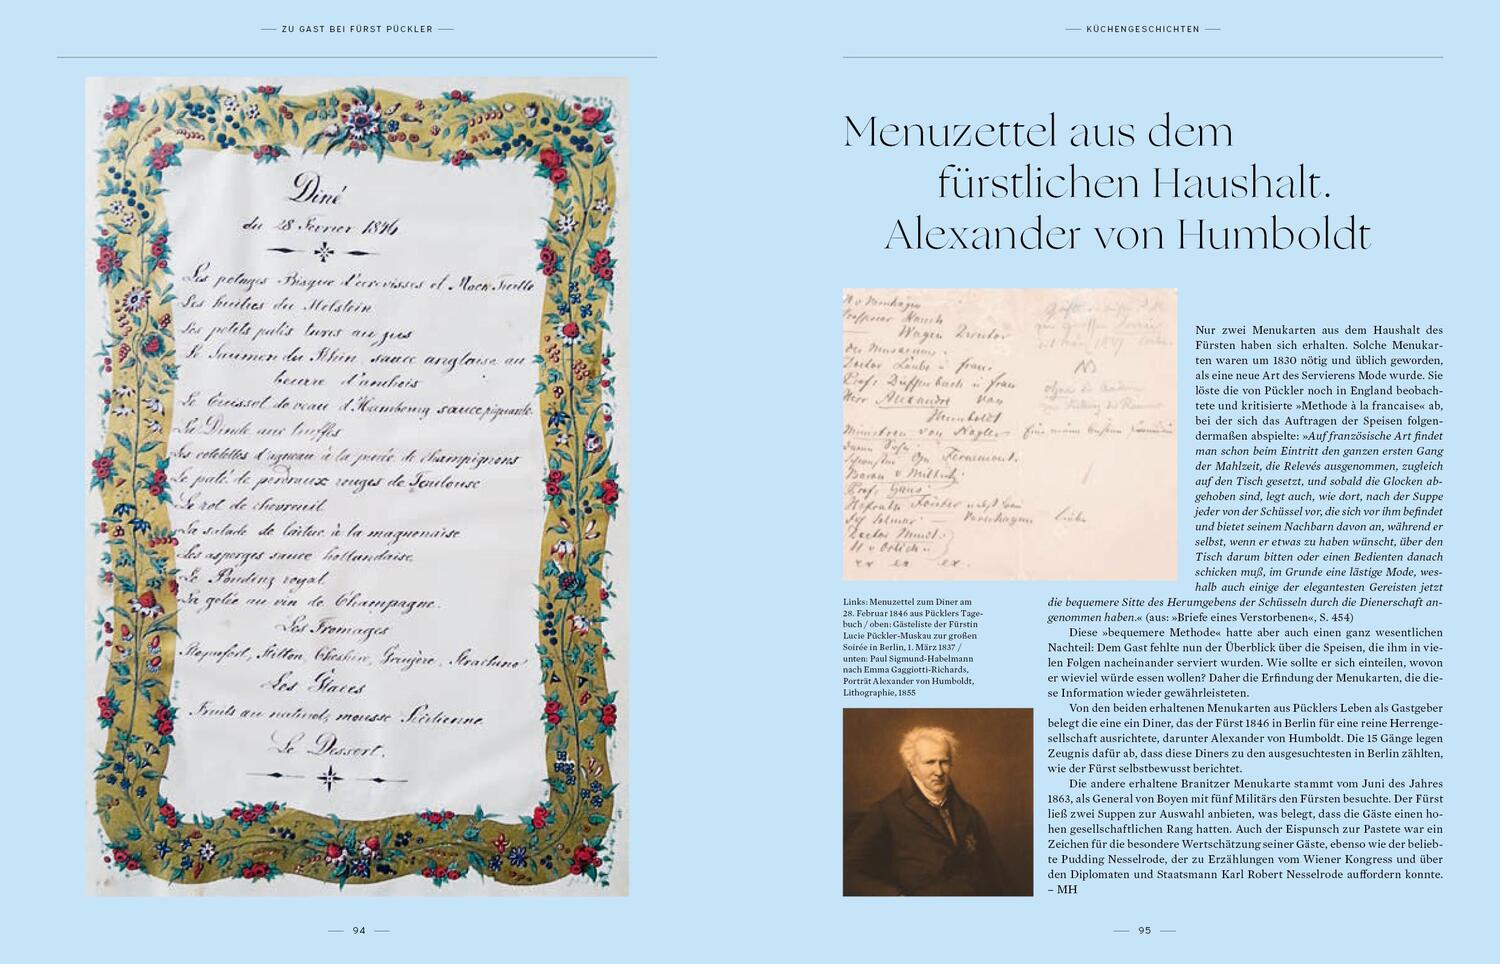 ZU GAST BEI FÜRST PÜCKLER
Diné
du 28 Fevrier 1846
Les potages Bisque d'écrevisses et Mock Turtle
Les huitres du Holstein
Les petits patés turcs au jus
Le Saumon du Rhin, sauce anglaise au
beurre d'anchois
Le Cuissot de veau d'Hambourg sauce piquante
La Dinde aux truffes
Les cotelettes d'agneau à la purée de champignons
Le paté de perdraux rouges de Toulouse
Le rot de chevreuil
La salade de laitue à la magnonaise
Les asperges sauce hollandaise
Le Pouding royal
La gelée au vin de Champagne.
Les Fromages
Roquefort, Stilton, Cheshire, Gruyère, Strachino
Les Glaces
Fruits au naturel, mousse Sicilienne
Le Dessert.
94
KÜCHENGESCHICHTEN
Menuzettel aus dem
fürstlichen Haushalt.
Alexander von Humboldt
Professor Rauch
Wagen Director
des Museums.
Doctor Laube u frau
Profs. Dieffenbach u frau
Herr Alexander von
Humboldt
Minister von Nagler
Baron v
Profs. Gans
Doctor
Nur zwei Menukarten aus dem Haushalt des
Fürsten haben sich erhalten. Solche Menukar-
ten waren um 1830 nötig und üblich geworden,
als eine neue Art des Servierens Mode wurde. Sie
löste die von Pückler noch in England beobach-
tete und kritisierte »Methode à la francaise« ab,
bei der sich das Auftragen der Speisen folgen-
dermaßen abspielte: »Auf französische Art findet
man schon beim Eintritt den ganzen ersten Gang
der Mahlzeit, die Relevés ausgenommen, zugleich
auf den Tisch gesetzt, und sobald die Glocken ab-
gehoben sind, legt auch, wie dort, nach der Suppe
jeder von der Schüssel vor, die sich vor ihm befindet
und bietet seinem Nachbarn davon an, während er
selbst, wenn er etwas zu haben wünscht, über den
Tisch darum bitten oder einen Bedienten danach
schicken muß, im Grunde eine lästige Mode, wes-
halb auch einige der elegantesten Gereisten jetzt
die bequemere Sitte des Herumgebens der Schüsseln durch die Dienerschaft an-
genommen haben.« (aus: »Briefe eines Verstorbenen«, S. 454)
Diese »bequemere Methode« hatte aber auch einen ganz wesentlichen
Nachteil: Dem Gast fehlte nun der Überblick über die Speisen, die ihm in vie-
len Folgen nacheinander serviert wurden. Wie sollte er sich einteilen, wovon
er wieviel würde essen wollen? Daher die Erfindung der Menukarten, die die-
se Information wieder gewährleisteten.
Von den beiden erhaltenen Menukarten aus Pücklers Leben als Gastgeber
belegt die eine ein Diner, das der Fürst 1846 in Berlin für eine reine Herrenge-
sellschaft ausrichtete, darunter Alexander von Humboldt. Die 15 Gänge legen
Zeugnis dafür ab, dass diese Diners zu den ausgesuchtesten in Berlin zählten,
wie der Fürst selbstbewusst berichtet.
Die andere erhaltene Branitzer Menukarte stammt vom Juni des Jahres
1863, als General von Boyen mit fünf Militärs den Fürsten besuchte. Der Fürst
ließ zwei Suppen zur Auswahl anbieten, was belegt, dass die Gäste einen ho-
hen gesellschaftlichen Rang hatten. Auch der Eispunsch zur Pastete war ein
Zeichen für die besondere Wertschätzung seiner Gäste, ebenso wie der belieb-
te Pudding Nesselrode, der zu Erzählungen vom Wiener Kongress und über
den Diplomaten und Staatsmann Karl Robert Nesselrode auffordern konnte.
– MH
Links: Menuzettel zum Diner am
28. Februar 1846 aus Pücklers Tage-
buch / oben: Gästeliste der Fürstin
Lucie Pückler-Muskau zur großen
Soirée in Berlin, 1. März 1837 /
unten: Paul Sigmund-Habelmann
nach Emma Gaggiotti-Richards,
Porträt Alexander von Humboldt,
Lithographie, 1855
95